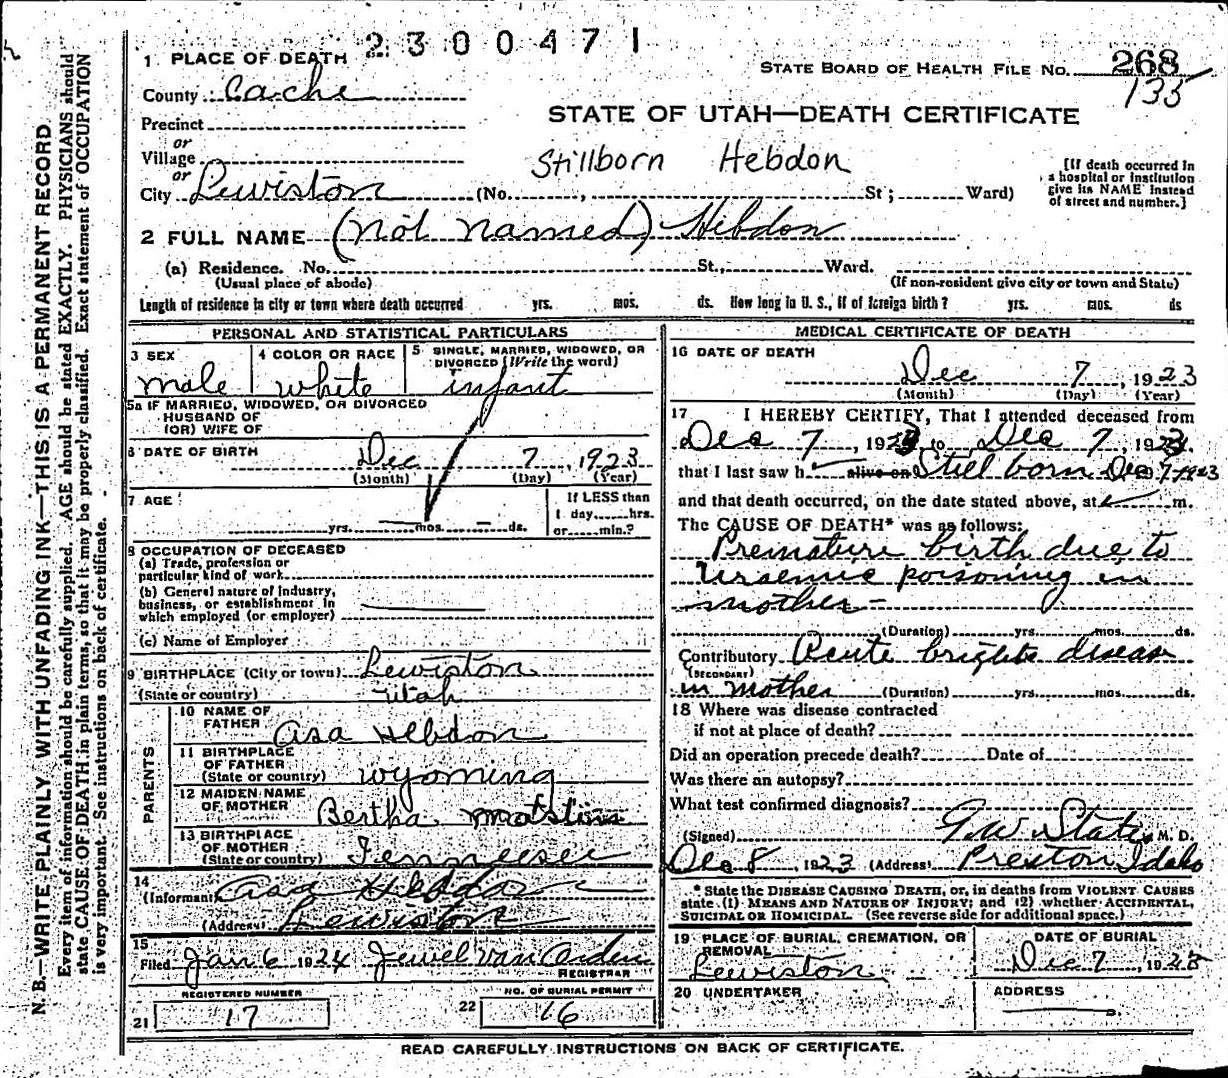 2300471
1 PLACE OF DEATH
STATE BOARD OF HEALTH FILE NO. 268
135
County Cache
STATE OF UTAH—DEATH CERTIFICATE
Precinct
or
Village
Stillborn Hebdon
[If death occurred in a hospital or institution give its NAME instead of street and number.]
or
City Lewiston (No. , St; Ward)
2 FULL NAME (not named) Hebdon
(a) Residence. No. St., Ward.
(Usual place of abode) (If non-resident give city or town and State)
Length of residence in city or town where death occurred yrs. mos. ds. How long in U. S., if of foreign birth? yrs. mos. ds
PERSONAL AND STATISTICAL PARTICULARS
3 SEX male
4 COLOR OR RACE white
5 SINGLE, MARRIED, WIDOWED, OR DIVORCED (Write the word) infant
5a IF MARRIED, WIDOWED, OR DIVORCED
HUSBAND OF
(OR) WIFE OF
6 DATE OF BIRTH Dec 7, 1923
(Month) (Day) (Year)
7 AGE
yrs. mos. ds.
If LESS than
1 day hrs.
or min.?
8 OCCUPATION OF DECEASED
(a) Trade, profession or
particular kind of work
(b) General nature of industry,
business, or establishment in
which employed (or employer)
(c) Name of Employer
9 BIRTHPLACE (City or town) Lewiston
(State or country) Utah
PARENTS
10 NAME OF
FATHER Asa Hebdon
11 BIRTHPLACE
OF FATHER
(State or country) Wyoming
12 MAIDEN NAME
OF MOTHER Bertha
13 BIRTHPLACE
OF MOTHER
(State or country) Tennessee
14
(Informant) Asa Hebdon
(Address) Lewiston
15
Filed Jan 6 1924 Jewel Van Orden
REGISTRAR
REGISTERED NUMBER
21 17
NO. OF BURIAL PERMIT
22 16
MEDICAL CERTIFICATE OF DEATH
16 DATE OF DEATH
Dec 7, 1923
(Month) (Day) (Year)
17 I HEREBY CERTIFY, That I attended deceased from
Dec 7, 1923 to Dec 7, 1923
that I last saw h alive on Still born Dec 7-1923
and that death occurred, on the date stated above, at m.
The CAUSE OF DEATH* was as follows:
Premature birth due to
Uraemic poisoning in
mother-
(Duration) yrs. mos. ds.
Contributory Acute brights disease
(SECONDARY)
in mother (Duration) yrs. mos. ds.
18 Where was disease contracted
if not at place of death?
Did an operation precede death? Date of
Was there an autopsy?
What test confirmed diagnosis?
(Signed) G.W. States M. D.
Dec 8, 1923 (Address) Preston, Idaho
* State the DISEASE CAUSING DEATH, or, in deaths from VIOLENT CAUSES
state (1) MEANS AND NATURE OF INJURY; and (2) whether ACCIDENTAL,
SUICIDAL OR HOMICIDAL. (See reverse side for additional space.)
19 PLACE OF BURIAL, CREMATION, OR
REMOVAL
Lewiston
DATE OF BURIAL
Dec 7, 1923
20 UNDERTAKER
ADDRESS
READ CAREFULLY INSTRUCTIONS ON BACK OF CERTIFICATE.
N. B.—WRITE PLAINLY WITH UNFADING INK—THIS IS A PERMANENT RECORD
Every item of information should be carefully supplied. AGE should be stated EXACTLY. PHYSICIANS should
state CAUSE OF DEATH in plain terms, so that it may be properly classified. Exact statement of OCCUPATION
is very important. See instructions on back of certificate.